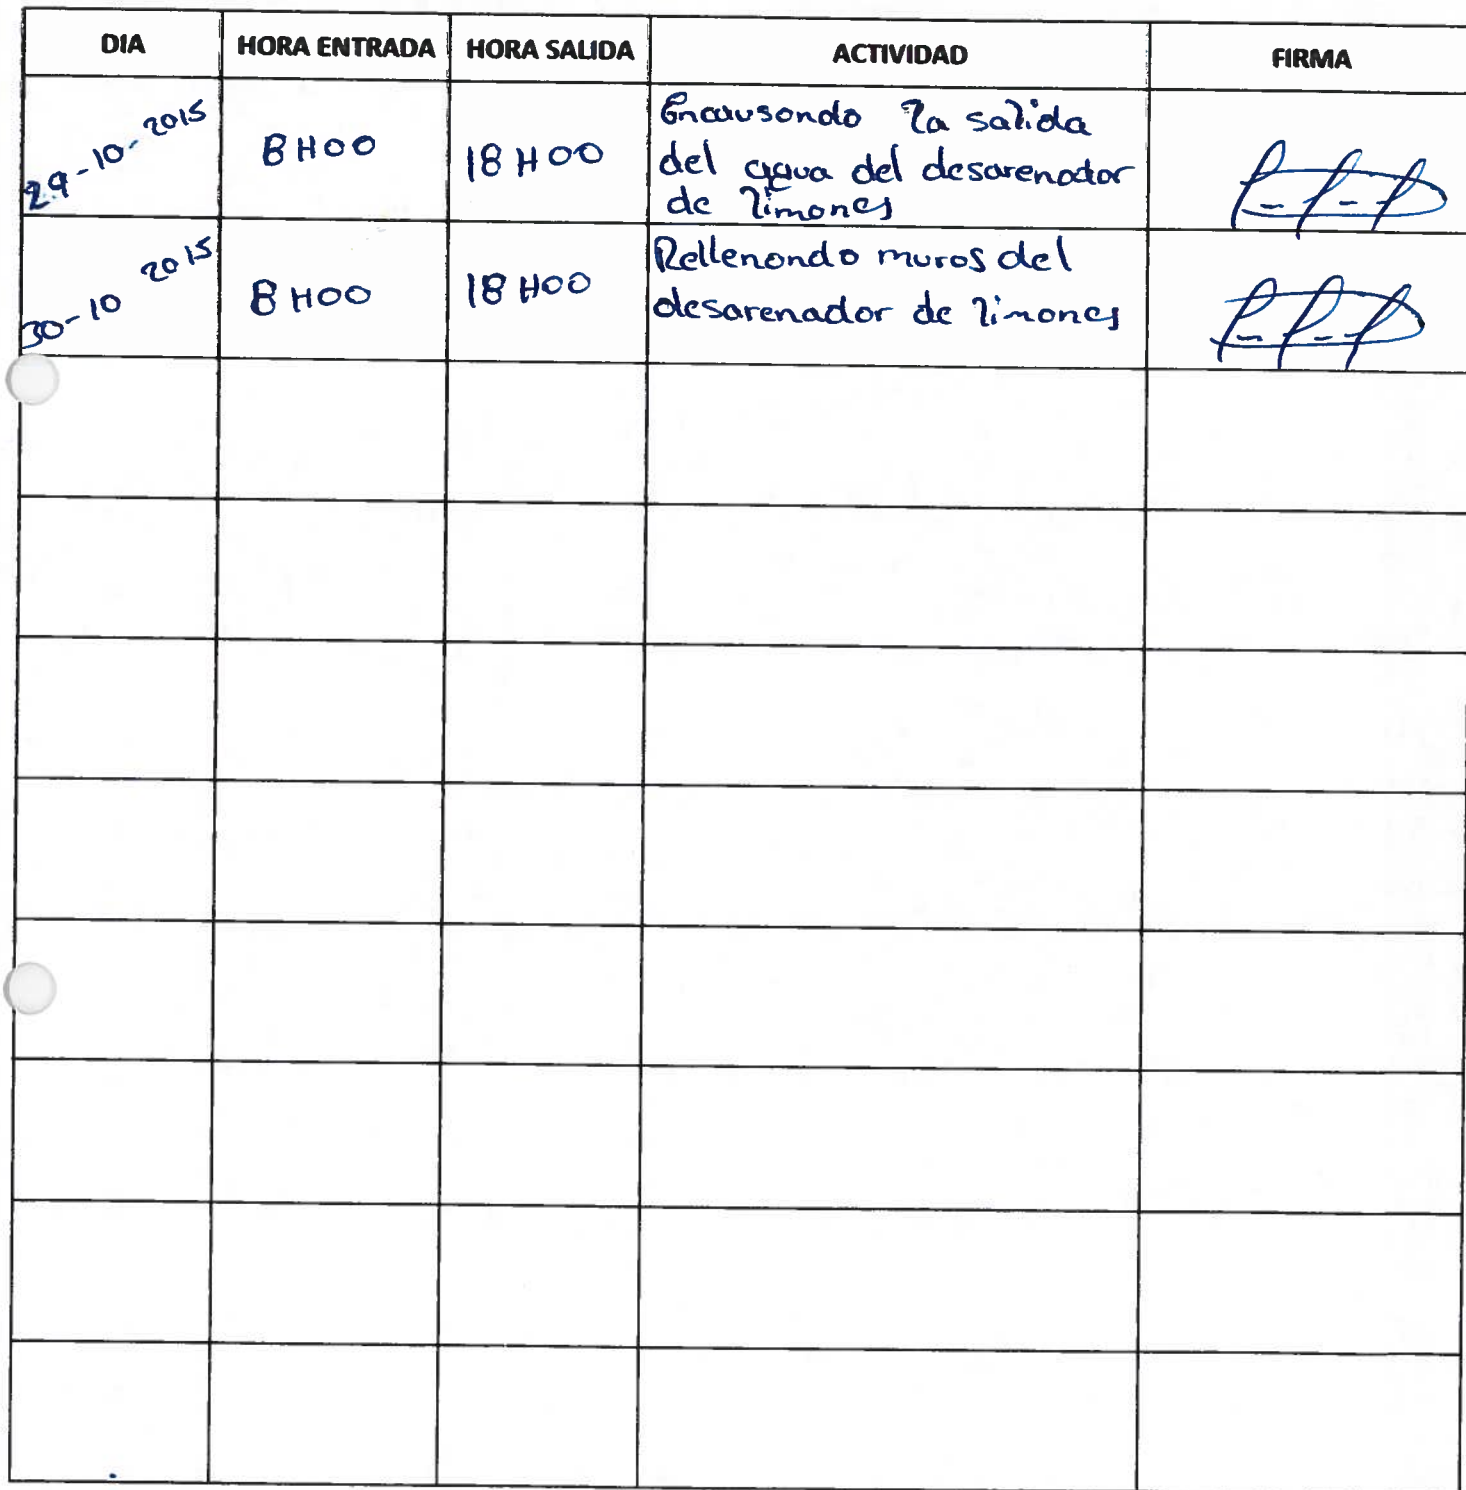 DIA HORA ENTRADA HORA SALIDA ACTIVIDAD FIRMA
29-10-2015 8H00 18H00 Encausondo la salida
del agua del desarenador
de limones
30-10 2015 8H00 18H00 Rellenondo muros del
desarenador de limones